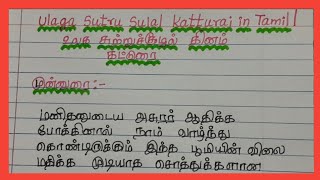 Ulaga Sutru Sulal Katturai in Tamil
உலக சுற்றுச்சூழல் தினம்
கட்டுரை
முன்னுரை :-
மனிதனுடைய அசுரர் ஆதிக்க
போக்கினால் நாம் வாழ்ந்து
கொண்டிருக்கும் இந்த பூமியின் விலை
மதிக்க முடியாத சொத்துக்களான